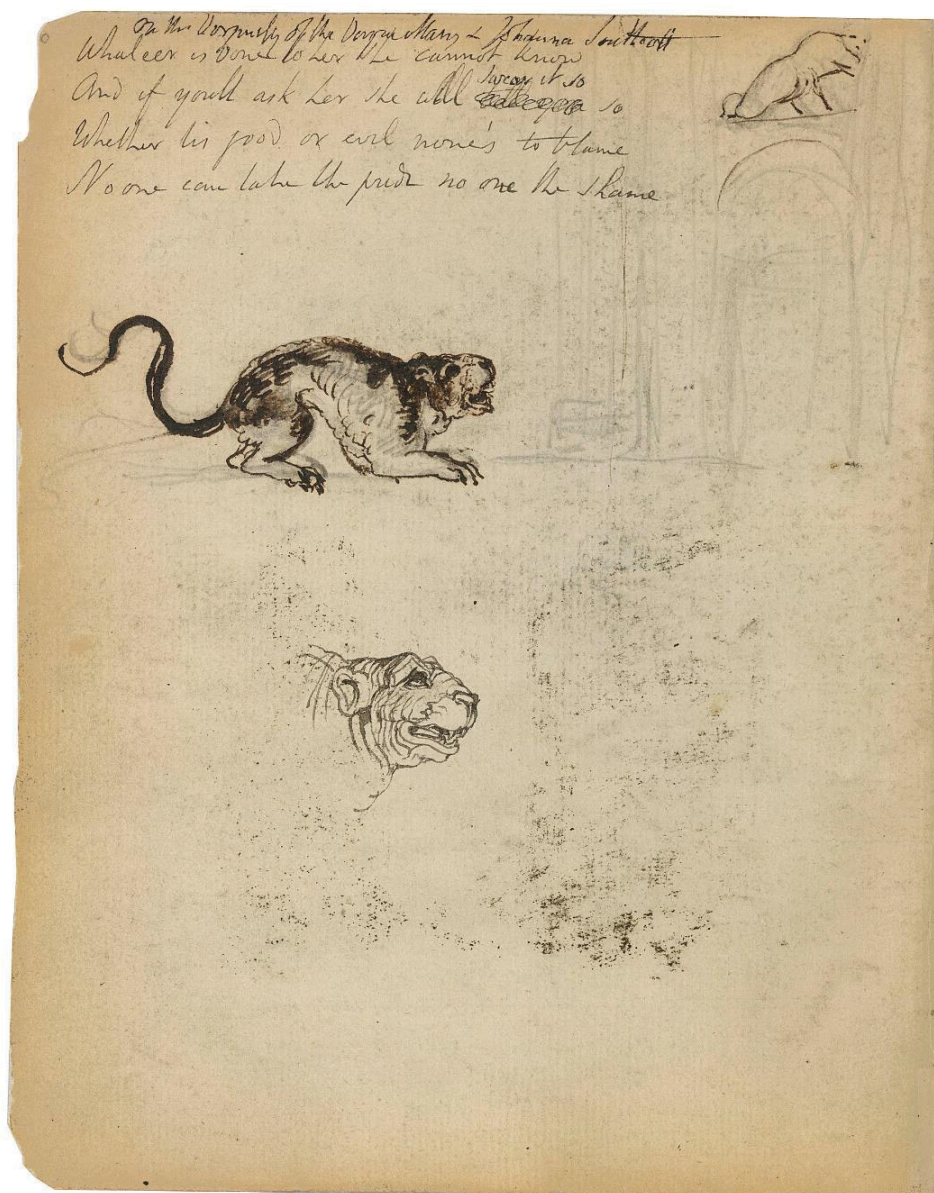 On the Virginity of the Virgin Mary & Johanna Southcott
Whateer is done to her she cannot know
And if youll ask her she will swear it so
so
Whether tis good or evil none's to blame
No one can take the pride no one the shame